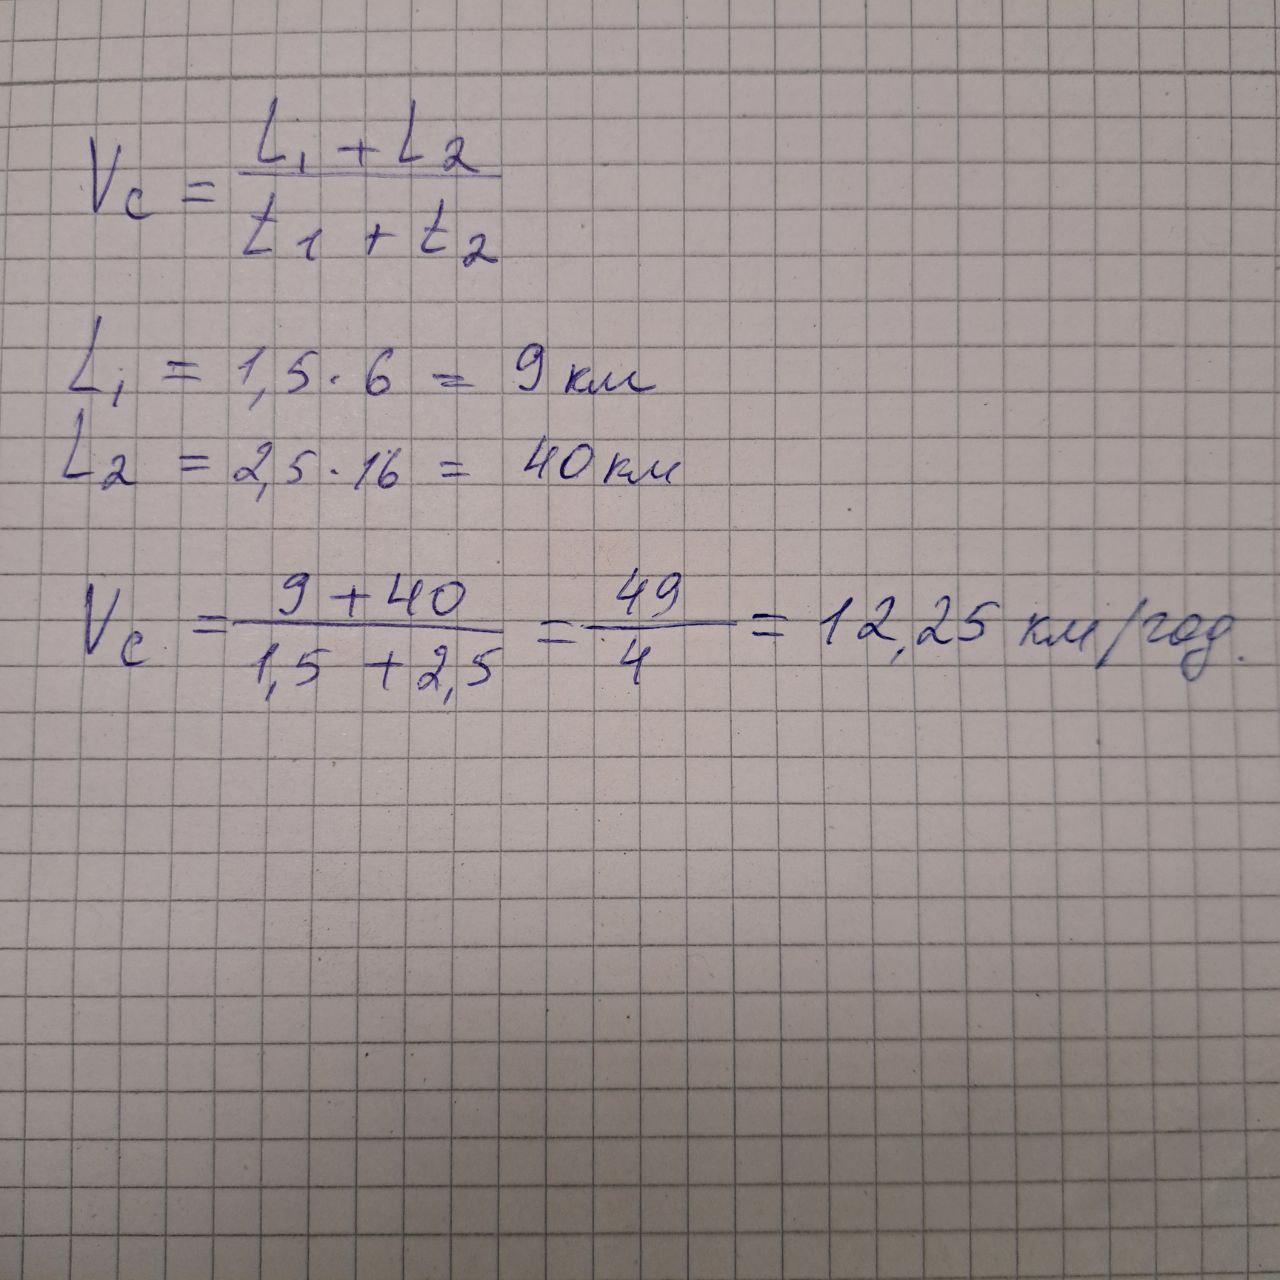 Vc = (L₁ + L₂) / (t₁ + t₂)
L₁ = 1,5 · 6 = 9 км
L₂ = 2,5 · 16 = 40 км
Vc = (9 + 40) / (1,5 + 2,5) = 49 / 4 = 12,25 км/год.